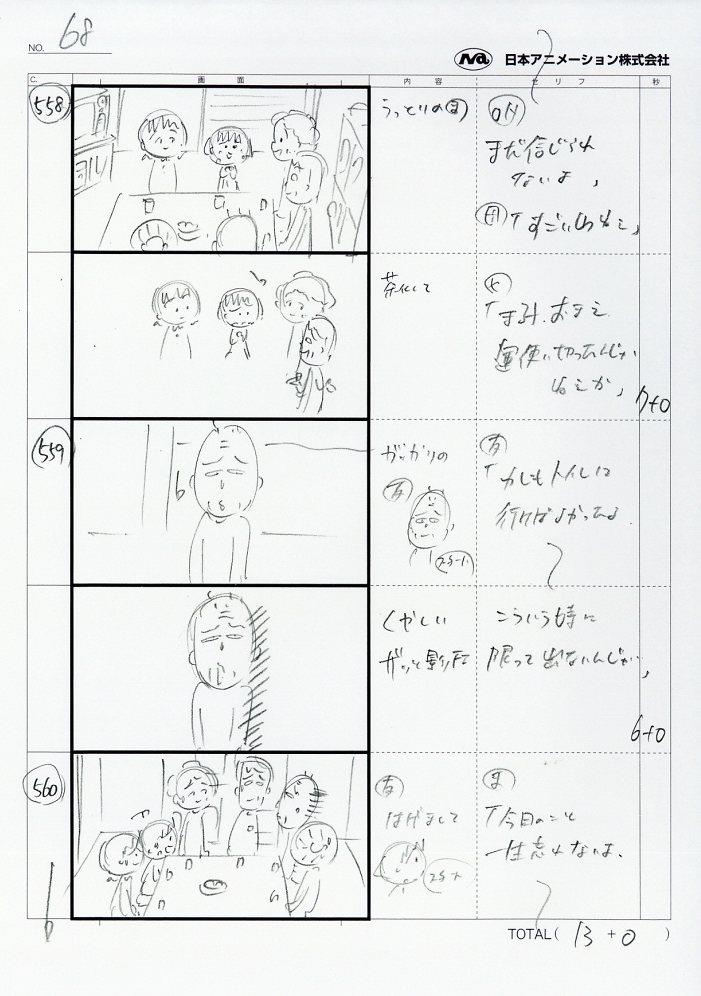 NO. 68
Na 日本アニメーション株式会社
C. 画面 内容 セリフ 秒
558
うっとりのま
ON
まだ信じられ
ないよ」
「すごいわねぇ」
茶化して
「まる子、おまえ
運使い切ったんじゃ
ねえか」
7+0
559
ガッカリの
友
スタート
友
「わしもトイレに
行けばよかったよ
くやしい
ガッと影FI
こういう時に
限って出ないんじゃ」
6+0
560
友
はげまして
スタート
ま
「今日のこと
一生忘れないよ、
TOTAL( 13 + 0 )